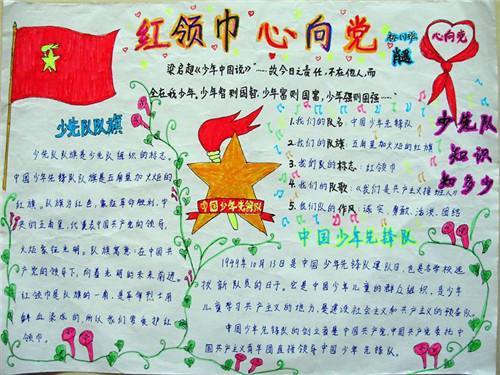 红领巾 心向党
心向党
梁启超《少年中国说》“……故今日之责任,不在他人,而
全在我少年。少年智则国智,少年富则国富,少年强则国强……”
少先队队旗
少先队队旗是少先队组织的标志。
中国少年先锋队队旗是五角星加火炬的
红旗。队旗为红色,象征革命胜利,中
央的五角星,代表中国共产党的领导,
火炬象征光明。队旗寓意:在中国共
产党的领导下,向着光明的未来前进。
红领巾是队旗的一角,是革命烈士用
鲜血染成的,所以我们常爱护红
领巾。
中国少年先锋队
1.我们的队名:中国少年先锋队
2.我们的队旗:五角星加火炬的红旗
3.我们队的标志:红领巾
4.我们的队歌:《我们是共产主义接班人》
5.我们队的作风:诚实、勇敢、活泼、团结
少先队
知识
知多少
中国少年先锋队
1949年10月13日是中国少年先锋队建队日,也是各学校选
拔新队员的日子。它是中国少年儿童的群众组织,是少年
儿童学习共产主义的地方,是建设社会主义和共产主义的预备队。
中国少年先锋队的创立者是中国共产党,中国共产党委托中
国共产主义青年团直接领导中国少年先锋队。